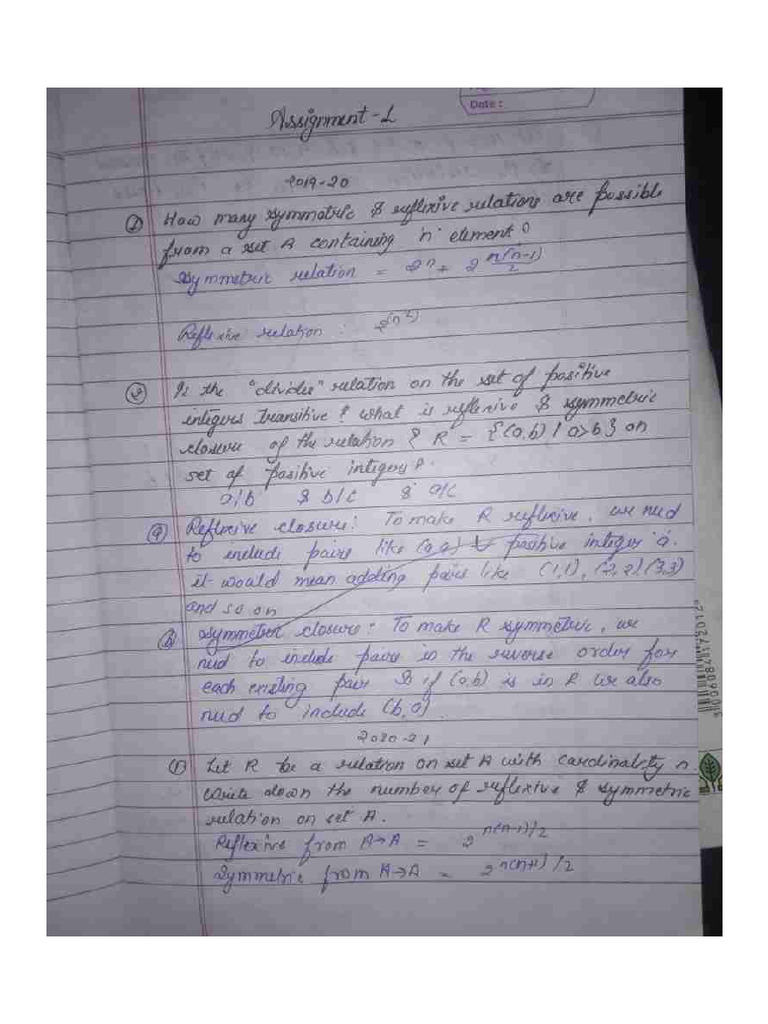 Date :
Assignment - 1
2019-20
① How many symmetric & reflexive relations are possible
from a set A containing 'n' element?
Symmetric relation = 2ⁿ + 2^(n(n-1)/2)
Reflexive relation : 2^(n²)
② Is the "divides" relation on the set of positive
integers transitive? what is reflexive & symmetric
closure of the relation & R = {(a,b) | a>b} on
set of positive integers?
a/b & b/c & a/c
ⓐ Reflexive closure: To make R reflexive, we need
to include pairs like (a,a) ∀ positive integer 'a.
it would mean adding pairs like (1,1), (2,2), (3,3)
and so on
ⓑ Symmetric closure: To make R symmetric, we
need to include pairs in the reverse order for
each existing pair So if (a,b) is in R we also
need to include (b,a).
2020-21
① Let R be a relation on set A with cardinality n.
write down the number of reflexive & symmetric
relation on set A.
Reflexive from A→A = 2^(n(n-1)/2)
Symmetric from A→A = 2^(n(n+1)/2)